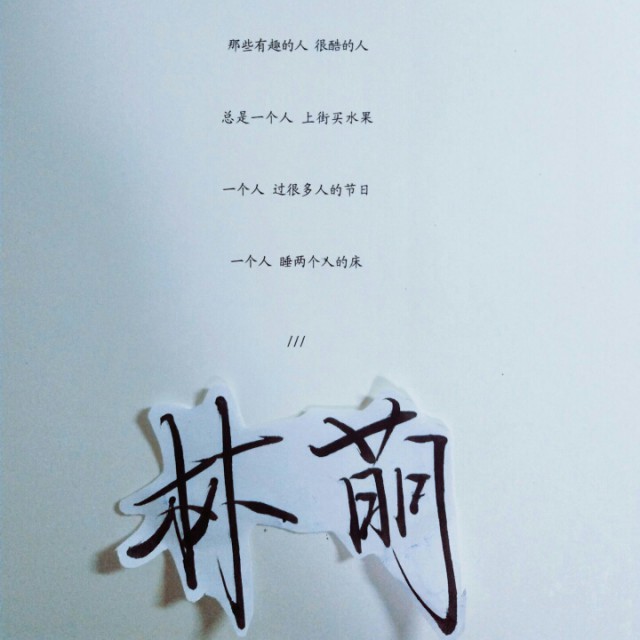 那些有趣的人 很酷的人
总是一个人 上街买水果
一个人 过很多人的节日
一个人 睡两个人的床
///
林萌